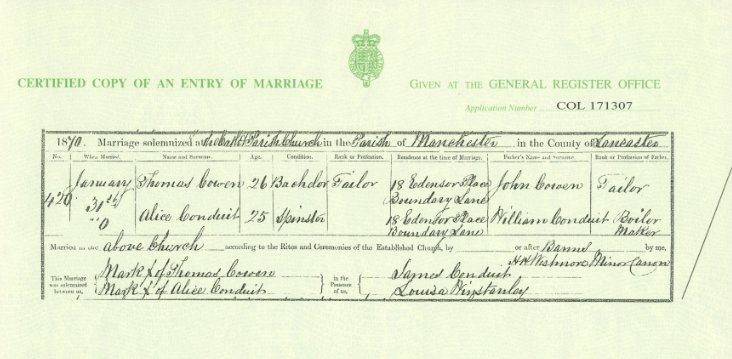 CERTIFIED COPY OF AN ENTRY OF MARRIAGE
GIVEN AT THE GENERAL REGISTER OFFICE
Application Number COL 171307
1870. Marriage solemnized at Parish Church in the Parish of Manchester in the County of Lancaster
No. When Married. Name and Surname. Age. Condition. Rank or Profession. Residence at the time of Marriage. Father's Name and Surname. Rank or Profession of Father.
January Thomas Cowen 26 Bachelor Tailor 18 Edensor Place John Cowen Tailor
Boundary Lane
Alice Conduit 25 Spinster 18 Edensor Place William Conduit Boiler
Boundary Lane Maker
Married in the above Church according to the Rites and Ceremonies of the Established Church, by or after Banns by me,
Minor Canon
This Marriage was solemnized between us,
Mark x of Thomas Cowen
Mark x of Alice Conduit
in the Presence of us,
James Conduit
Louisa Winstanley